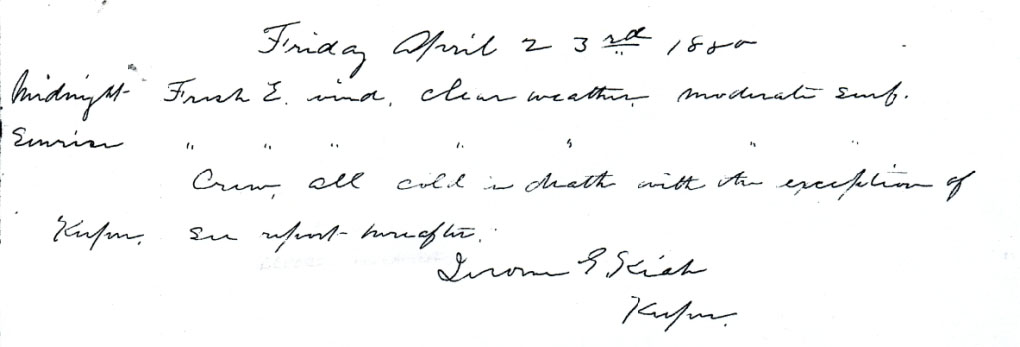 Friday April 23rd 1880
Midnight Fresh E. wind, clear weather, moderate surf.
Sunrise " " " " " " "
Crew, all cold in death with the exception of
Keeper. See report hereafter.
Jerome G. Kiah
Keeper.